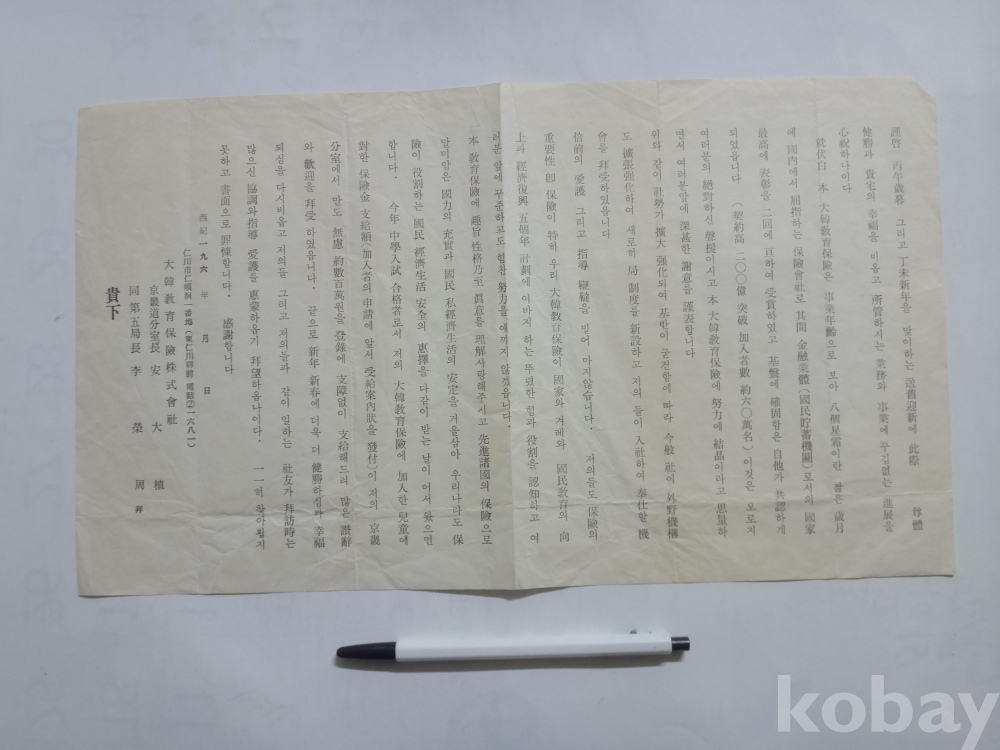 謹啓 丙午歲暮 그리고 丁未新年을 맞이하는 送舊迎新에 此際 尊體
健勝과 貴宅의 幸福을 비옵고 所管하시는 業務와 事業에 꾸김없는 進展을
心祝하나이다
敍伏白 本 大韓教育保險은 事業年齡으로 보아 八個星霜이란 짧은 歲月
에 國內에서 屈指하는 保險會社로서 其間 金融業體(國民貯蓄機關)로서의 國家
最高에 表彰을 二回에 亘하여 受賞하였고 基盤에 確固함은 自他가 共認하게
되었읍니다 (契約高 二○○億 突破 加入者數 約六○萬名) 이것은 오로지
여러분의 絕對하신 聲援이시고 本 大韓教育保險에 努力에 結晶이라고 思量하
면서 여러분앞에 深甚한 謝意를 謹表합니다
위와 같이 社勢가 擴大 强化되여 基盤이 굳건함에 따라 今般 社에 外野機構
도 擴張强化하여 새로히 局 制度를 新設하고 저의 들이 入社하여 奉仕할 機
會를 拜受하였읍니다
倍前의 愛護 그리고 指導 鞭撻을 빌어 마지않습니다. 저의들도 保險의
重要性 卽 保險이 特히 우리 大韓教育保險이 國家와 겨레와 國民教育의 向
上과 經濟復興 五個年 計劃에 이바지 하는 뚜렷한 힘과 役割을 認知하고 여
러분 앞에 꾸준하고도 힘찬 努力을 애끼지 않겠읍니다.
本 教育保險에 趣旨 性格乃至 眞意를 理解사랑해주시고 先進諸國의 保險으로
말미암은 國力의 充實과 國民 私經濟生活의 安定을 거울삼아 우리나라도 保
險이 役割하는 國民 經濟生活 安全의 惠擇을 다같이 받는 날이 어서 왔으면
합니다. 今年 中學入試 合格者로서 저의 大韓教育保險에 加入한 兒童에
對한 保險金 支給額(加入者의 申請에 앞서 受給案內狀을 發付)이 저의 京畿
分室에서 만도 無慮 約數百萬원을 登錄에 支障없이 支給해드려 많은 讚辭
와 歡迎을 拜受 하였읍니다. 끝으로 新年 新春에 더욱 더 健勝하심과 幸福
되심을 다시비옵고 저의들 그리고 저의들과 같이 일하는 社友가 拜訪時는
많으신 協調와指導 愛護을 惠蒙하옵기 拜望하옵나이다. 一一히 찾아뵙지
못하고 書面으로 罪悚합니다. 感謝합니다
西紀一九六 年 月 日
仁川市仁峴洞一番地(東仁川驛前 電話②一六八一)
大韓教育保險株式會社
京畿道分室長 安 大 植
同 第五局長 李 榮 周 拜
貴下
kobay